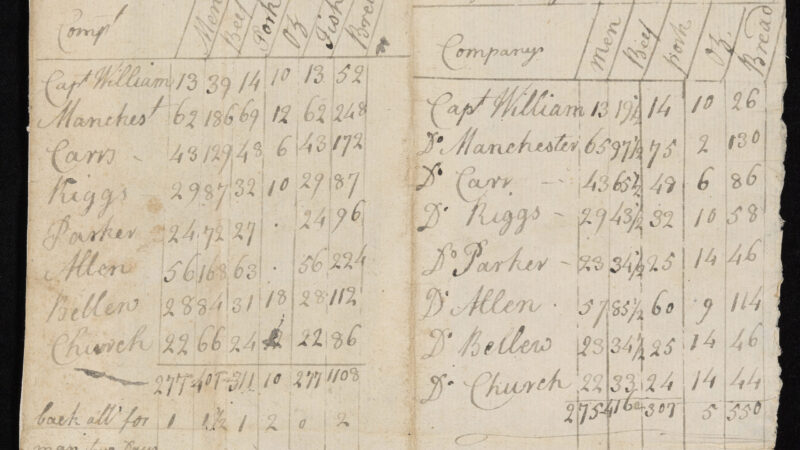 Comp^t Men Beef Pork Oz Fish Bread
Cap^t William 13 39 14 10 13 52
Manches^t 62 186 69 12 62 248
Carrs - 43 129 48 6 43 172
Riggs 29 87 32 10 29 87
Parker 24 72 27 . 24 96
Allen 56 168 63 . 56 224
Bellew 28 84 31 18 28 112
Church 22 66 24 22 86
277 311 10 277 1108
back all^o for 1 1½ 1 2 0 2
man
Companys men Beef pork Oz. Bread
Cap^t William 13 19½ 14 10 26
D^o Manchester 65 97½ 75 2 130
D^o Carr - 43 65½ 48 6 86
D^o Riggs - 29 43½ 32 10 58
D^o Parker - 23 34½ 25 14 46
D^o Allen . 57 85½ 60 9 114
D^o Bellew 23 34½ 25 14 46
D^o Church 22 33 24 14 44
275 307 5 550